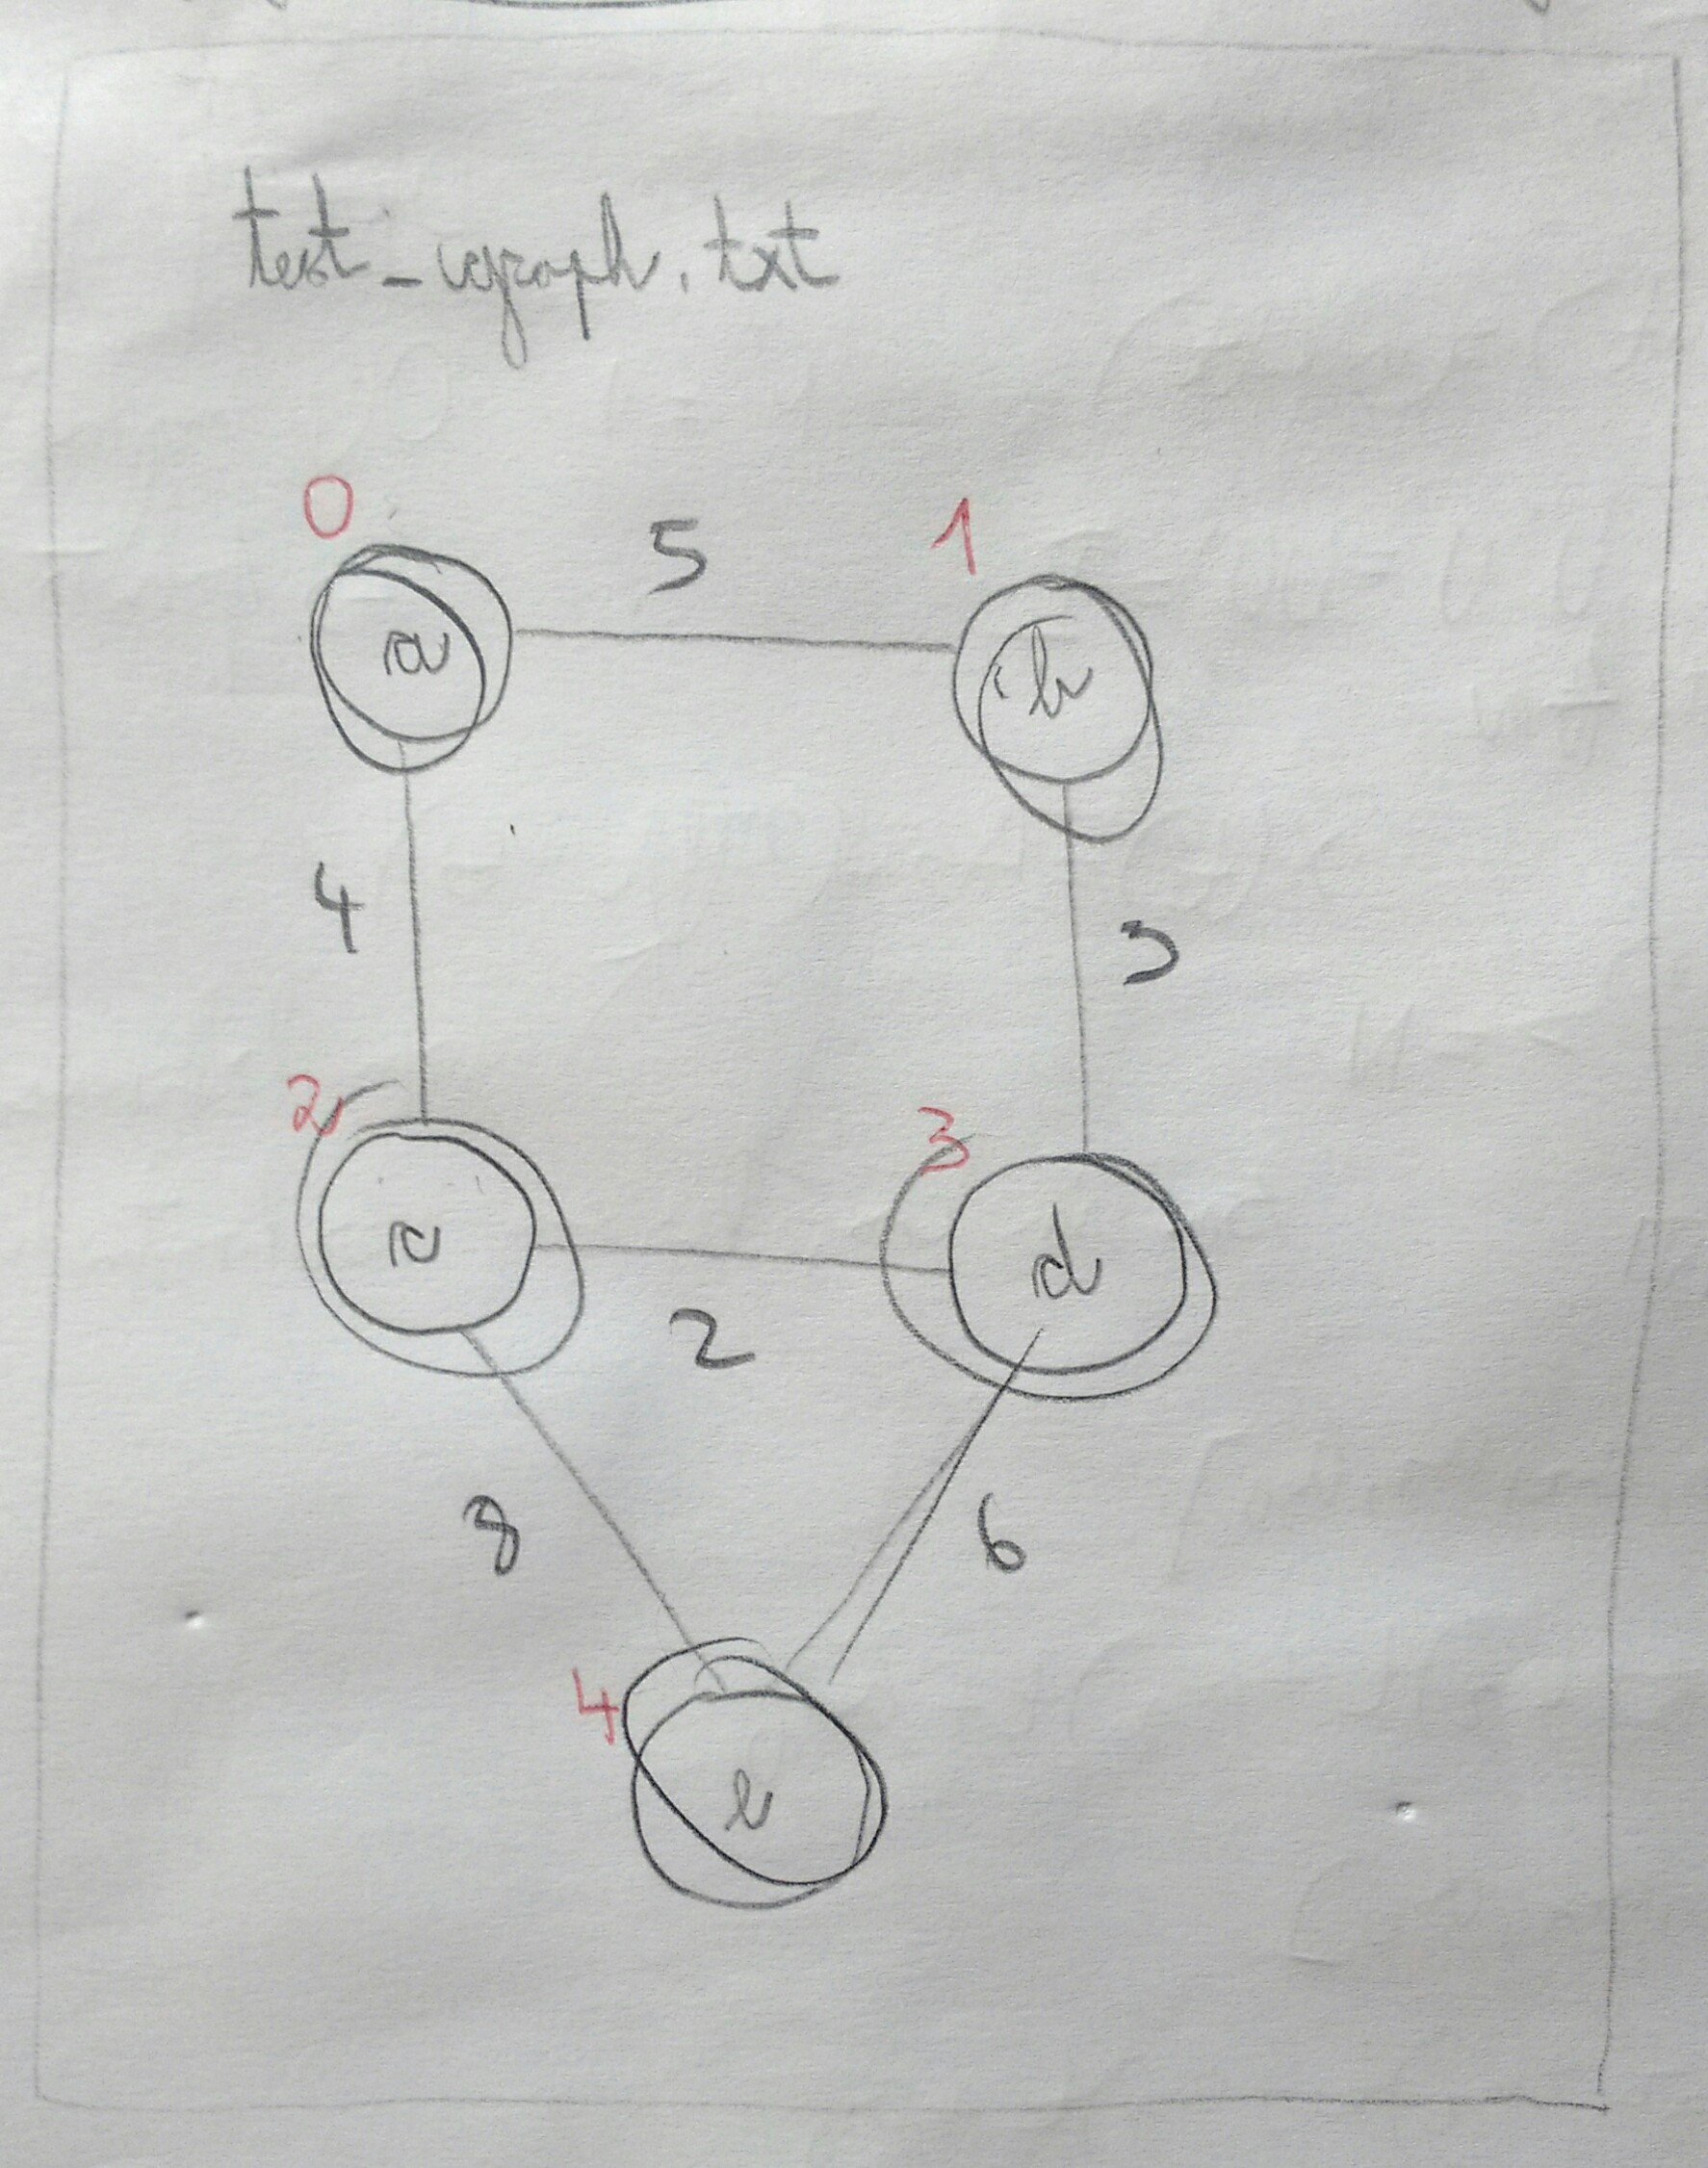 test_graph.txt
0
5
1
a
b
4
3
2
3
c
d
2
8
6
4
e